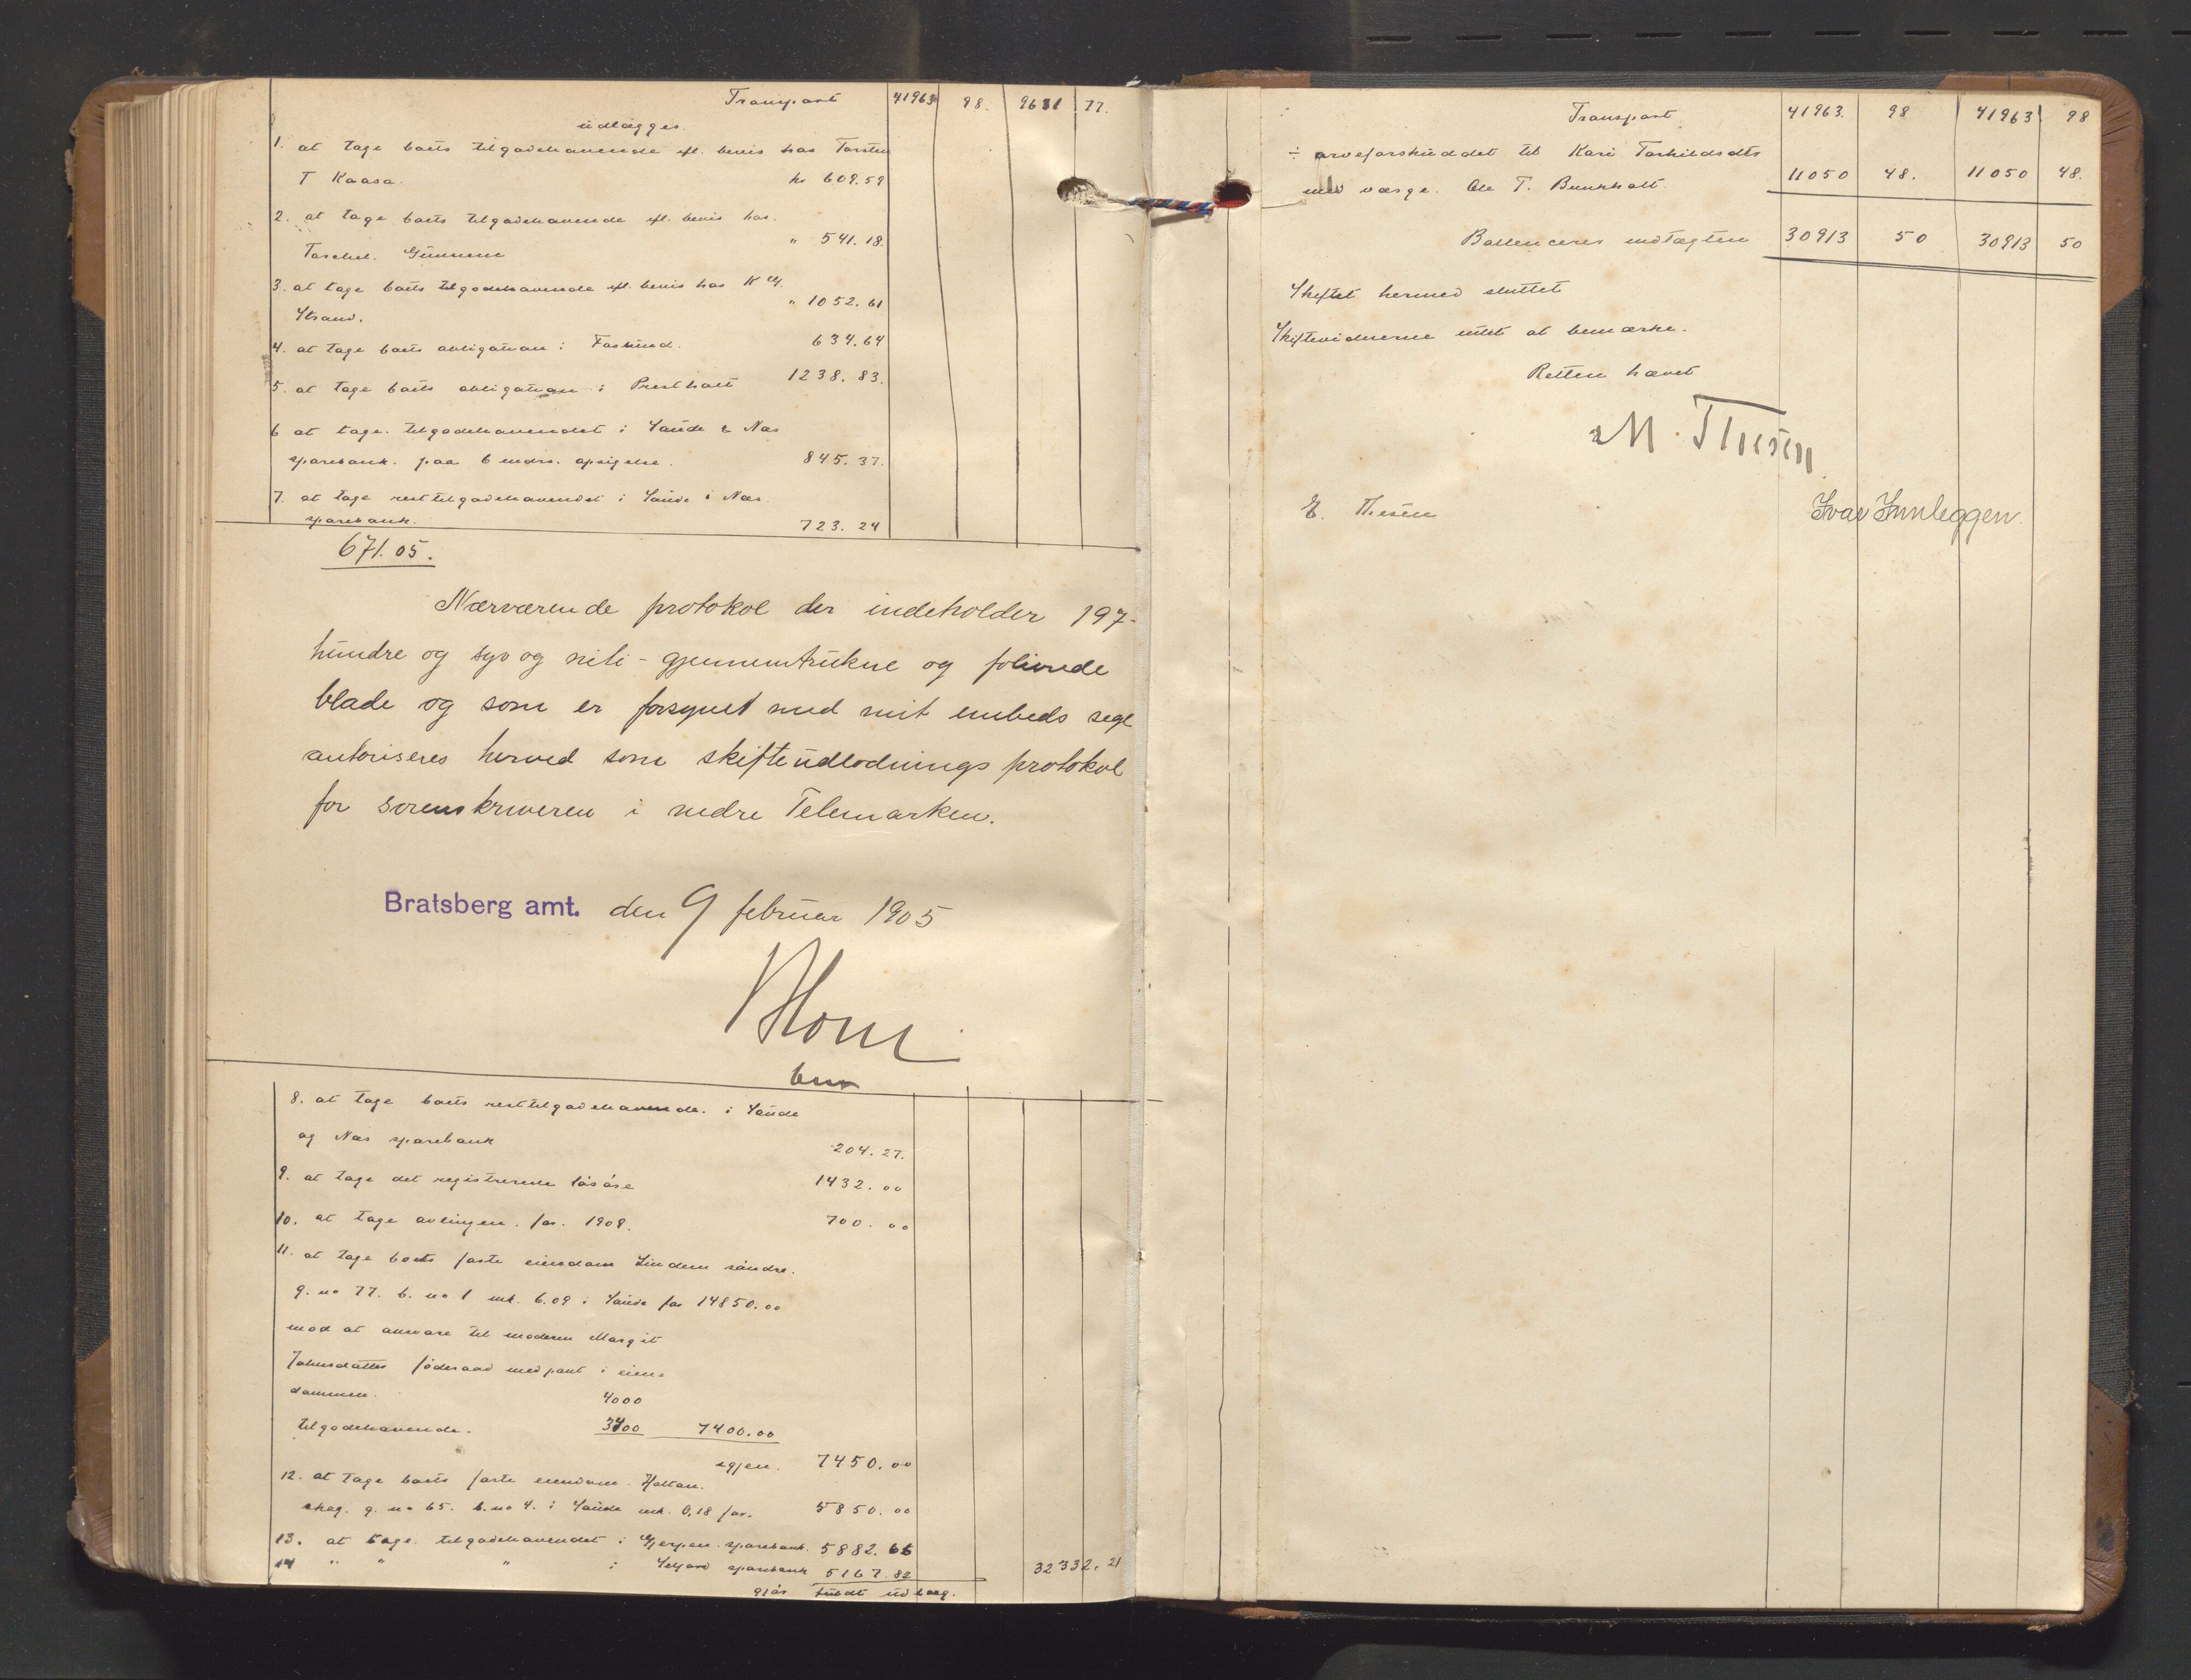 Transport 41963 98. 9631 77.
udlægges.
1. at tage boets tilgodehavende efl. bevis hos Torsten
T Kaasa. kr 609.59
2. at tage boets tilgodehavende efl. bevis hos.
" 541.18.
3. at tage boets tilgodehavende efl. bevis hos K
" 1052.61
Strand.
4. at tage boets obligation i 634.64
5. at tage boets obligation i Prestholt 1238.83.
6 at tage. tilgodehavendet i Saude & Nes
sparebank. paa 6 mdrs. opsigelse. 845.37.
7. at tage resttilgodehavendet i Saude & Nes.
sparebank. 723.24
671.05.
Nærværende protokol der indeholder 197-
hundre og syv og niti - gjennemtrukne og folierede
blade og som er forsynet med mit embeds segl
autoriseres herved som skifteudlodnings protokol
for sorenskriveren i nedre Telemarken.
Bratsberg amt. den 9 februar 1905
8. at tage boets resttilgodehavende. i Saude
og Nes sparebank 204.27.
9. at tage det registrerede løsøre 1432.00
10. at tage avlingen. for. 1908. 700.00
11. at tage boets faste eiendom Lindem søndre.
g. no 77. b. no 1 mk. 6.09 i Saude for 14850.00
mod at ansvare til moderen Margit
Johnsdatter føderaad med pant i eien-
dommen. 4000
tilgodehavende. 3400 7400.00
igjen. 7450.00
12. at tage boets faste eiendom. Holtan.
skog. g. no 65. b. no 4. i Saude mk. 0,18 for. 5850.00
13. at tage. tilgodehavendet i Gjerpen sparebank. 5882.66
14 " " " i Seljord sparebank 5167.82 32332.21
gjør fuldt udlæg.
Transport 41963. 98 41963 98
÷ arveforskuddet til Kari Torkildsdtr
med værge. Ole T. Bunkholt. 11050 48. 11050 48.
Ballencerer indtægten 30913 50 30913 50
Skiftet hermed sluttet
Skiftevidnerne intet at bemærke.
Retten hævet
M. Thesen
E. Thesen Ivar Innleggen